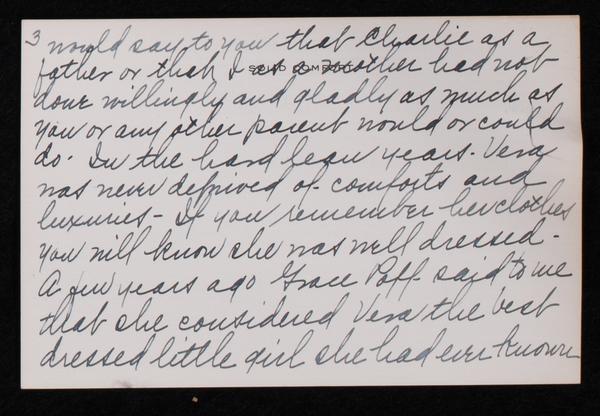 3 would say to you that Charlie as a
father or that I as a Mother had not
done willingly and gladly as much as
you or any other parent would or could
do. In the hard lean years. Vera
was never deprived of comforts and
luxuries - If you remember her clothes
you will know she was well dressed -
A few years ago Grace Poff said to me
that she considered Vera the best
dressed little girl she had ever known